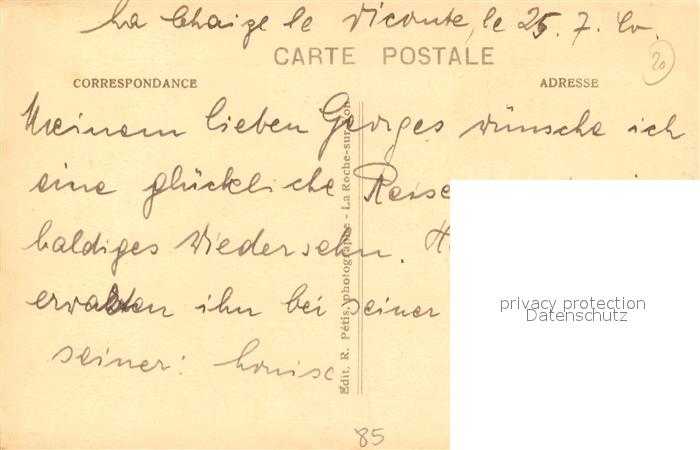 La Chaize le Viconte, le 25. 7. 40.
20
CARTE POSTALE
CORRESPONDANCE
ADRESSE
Meinem lieben Georges wünsche ich
eine glückliche Reise
baldiges Wiedersehn. H
erwarten ihn bei seiner
seiner: Louise
Edit. R. Pétis, photographe - La Roche-sur-Yon
privacy protection
Datenschutz
85